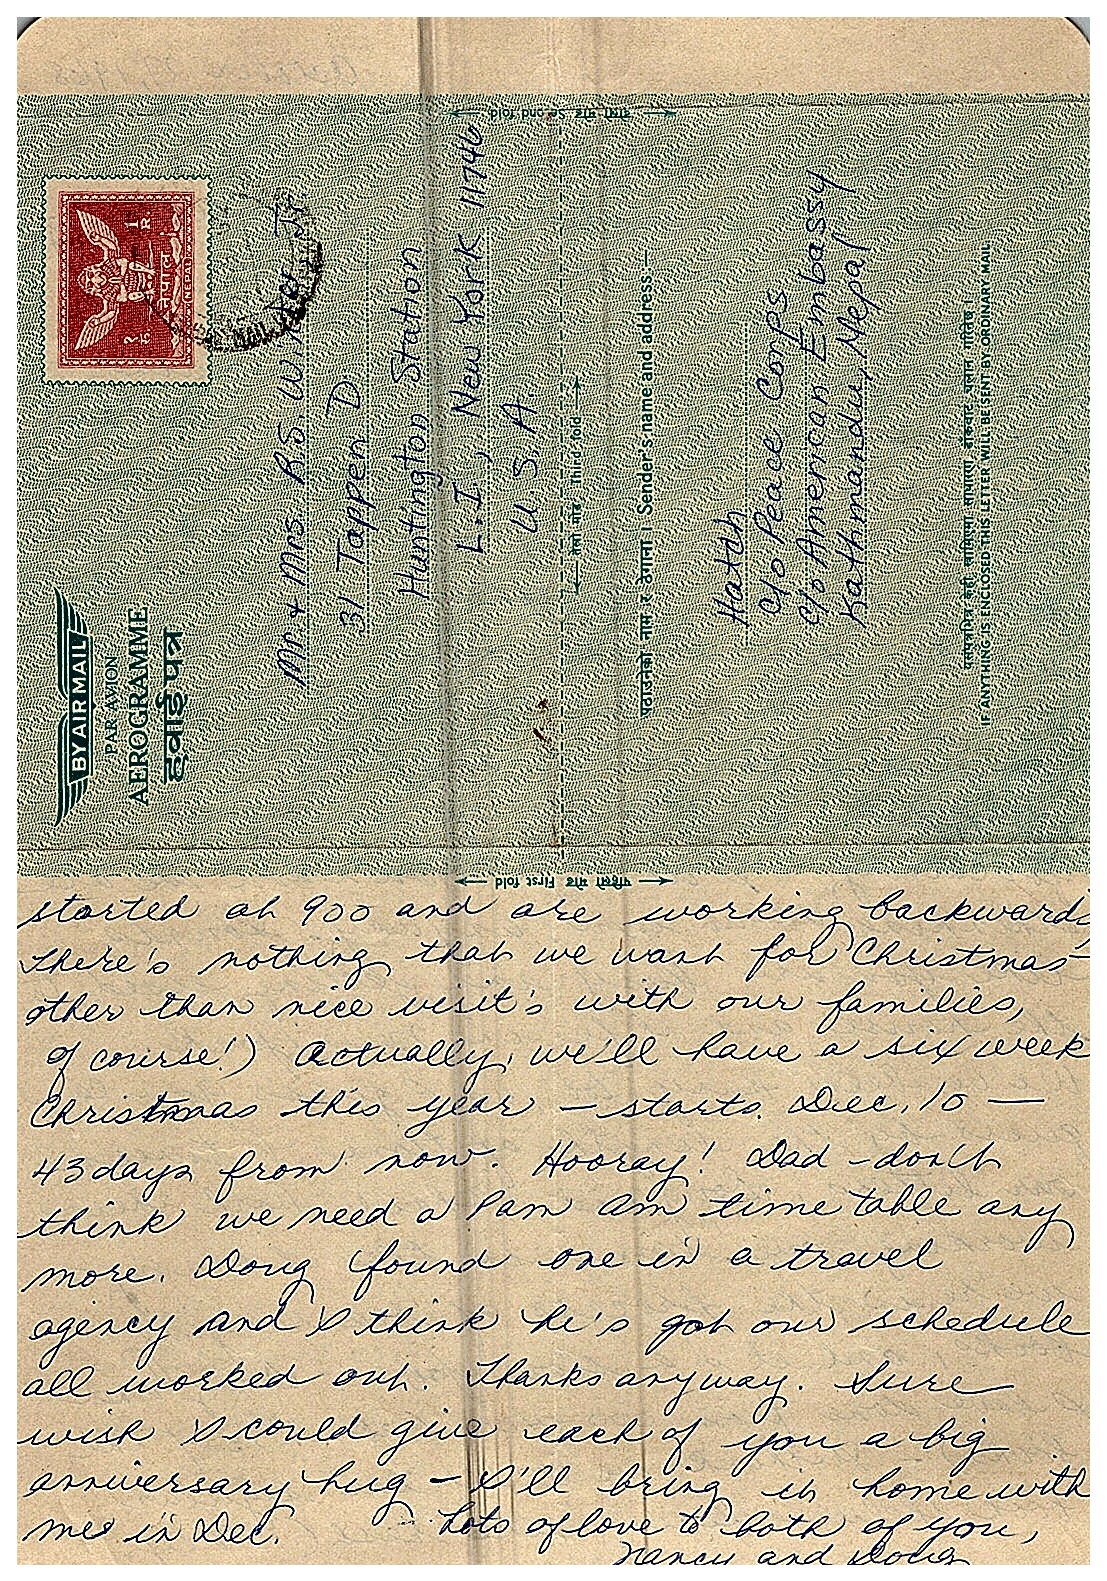 BY AIR MAIL
PAR AVION
AEROGRAMME
हवाई पत्र
नेपाल
NEPAL
1 R
१ रु
Mr. & Mrs. R.S. Winter Jr.
31 Tappen D.
Huntington Station
L.I., New York 11746
U.S.A.
दोस्रो मोड Second fold
तेस्रो मोड Third fold
पठाउनेको नाम र ठेगाना । Sender's name and address:—
Hatch
c/o Peace Corps
c/o American Embassy
Kathmandu, Nepal
IF ANYTHING IS ENCLOSED THIS LETTER WILL BE SENT BY ORDINARY MAIL
पहिलो मोड First fold
started at 900 and are working backwards
There's nothing that we want for Christmas -
other than nice visit's with our families,
of course!) Actually, we'll have a six week
Christmas this year — starts Dec. 10 —
43 days from now. Hooray! Dad - don't
think we need a Pam Am time table any
more. Doug found one in a travel
agency and I think he's got our schedule
all worked out. Thanks anyway. Sure
wish I could give each of you a big
anniversary hug - I'll bring it home with
me in Dec. Lots of love to both of you,
Nancy and Doug